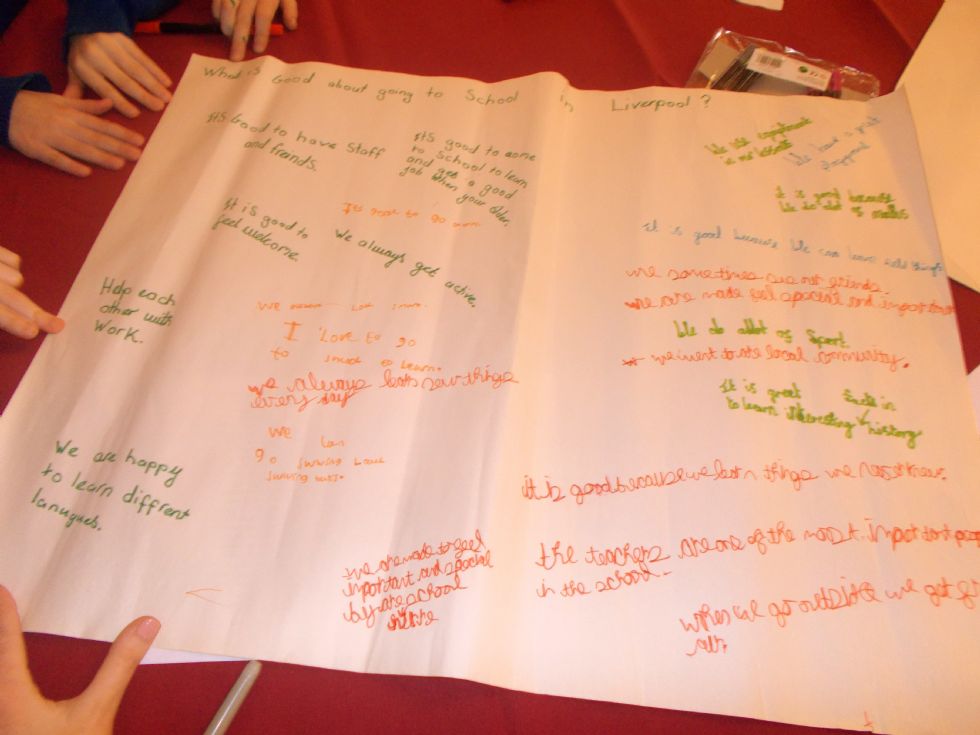 What is Good about going to School in Liverpool?
It's Good to have Staff
and friends.
It's good to come
to School to learn
and get a good
job when your older.
It is good to
feel welcome.
We always get active.
Help each
other with
Work.
I Love to go
to learn.
we always learn new things
every day
We can
go
We are happy
to learn diffrent
lanugues.
we are made to feel
important and special
by are school
We have a great
in
it is good because
We do alot of maths
it is good because We can learn things
we sometimes
we are made feel special and important
We do allot of Sport
we went to the local community.
It is great
to learn interesting history
it is good because we learn things we never knew.
the teachers are one of the most important
in the school.
when we go outside we get
air.